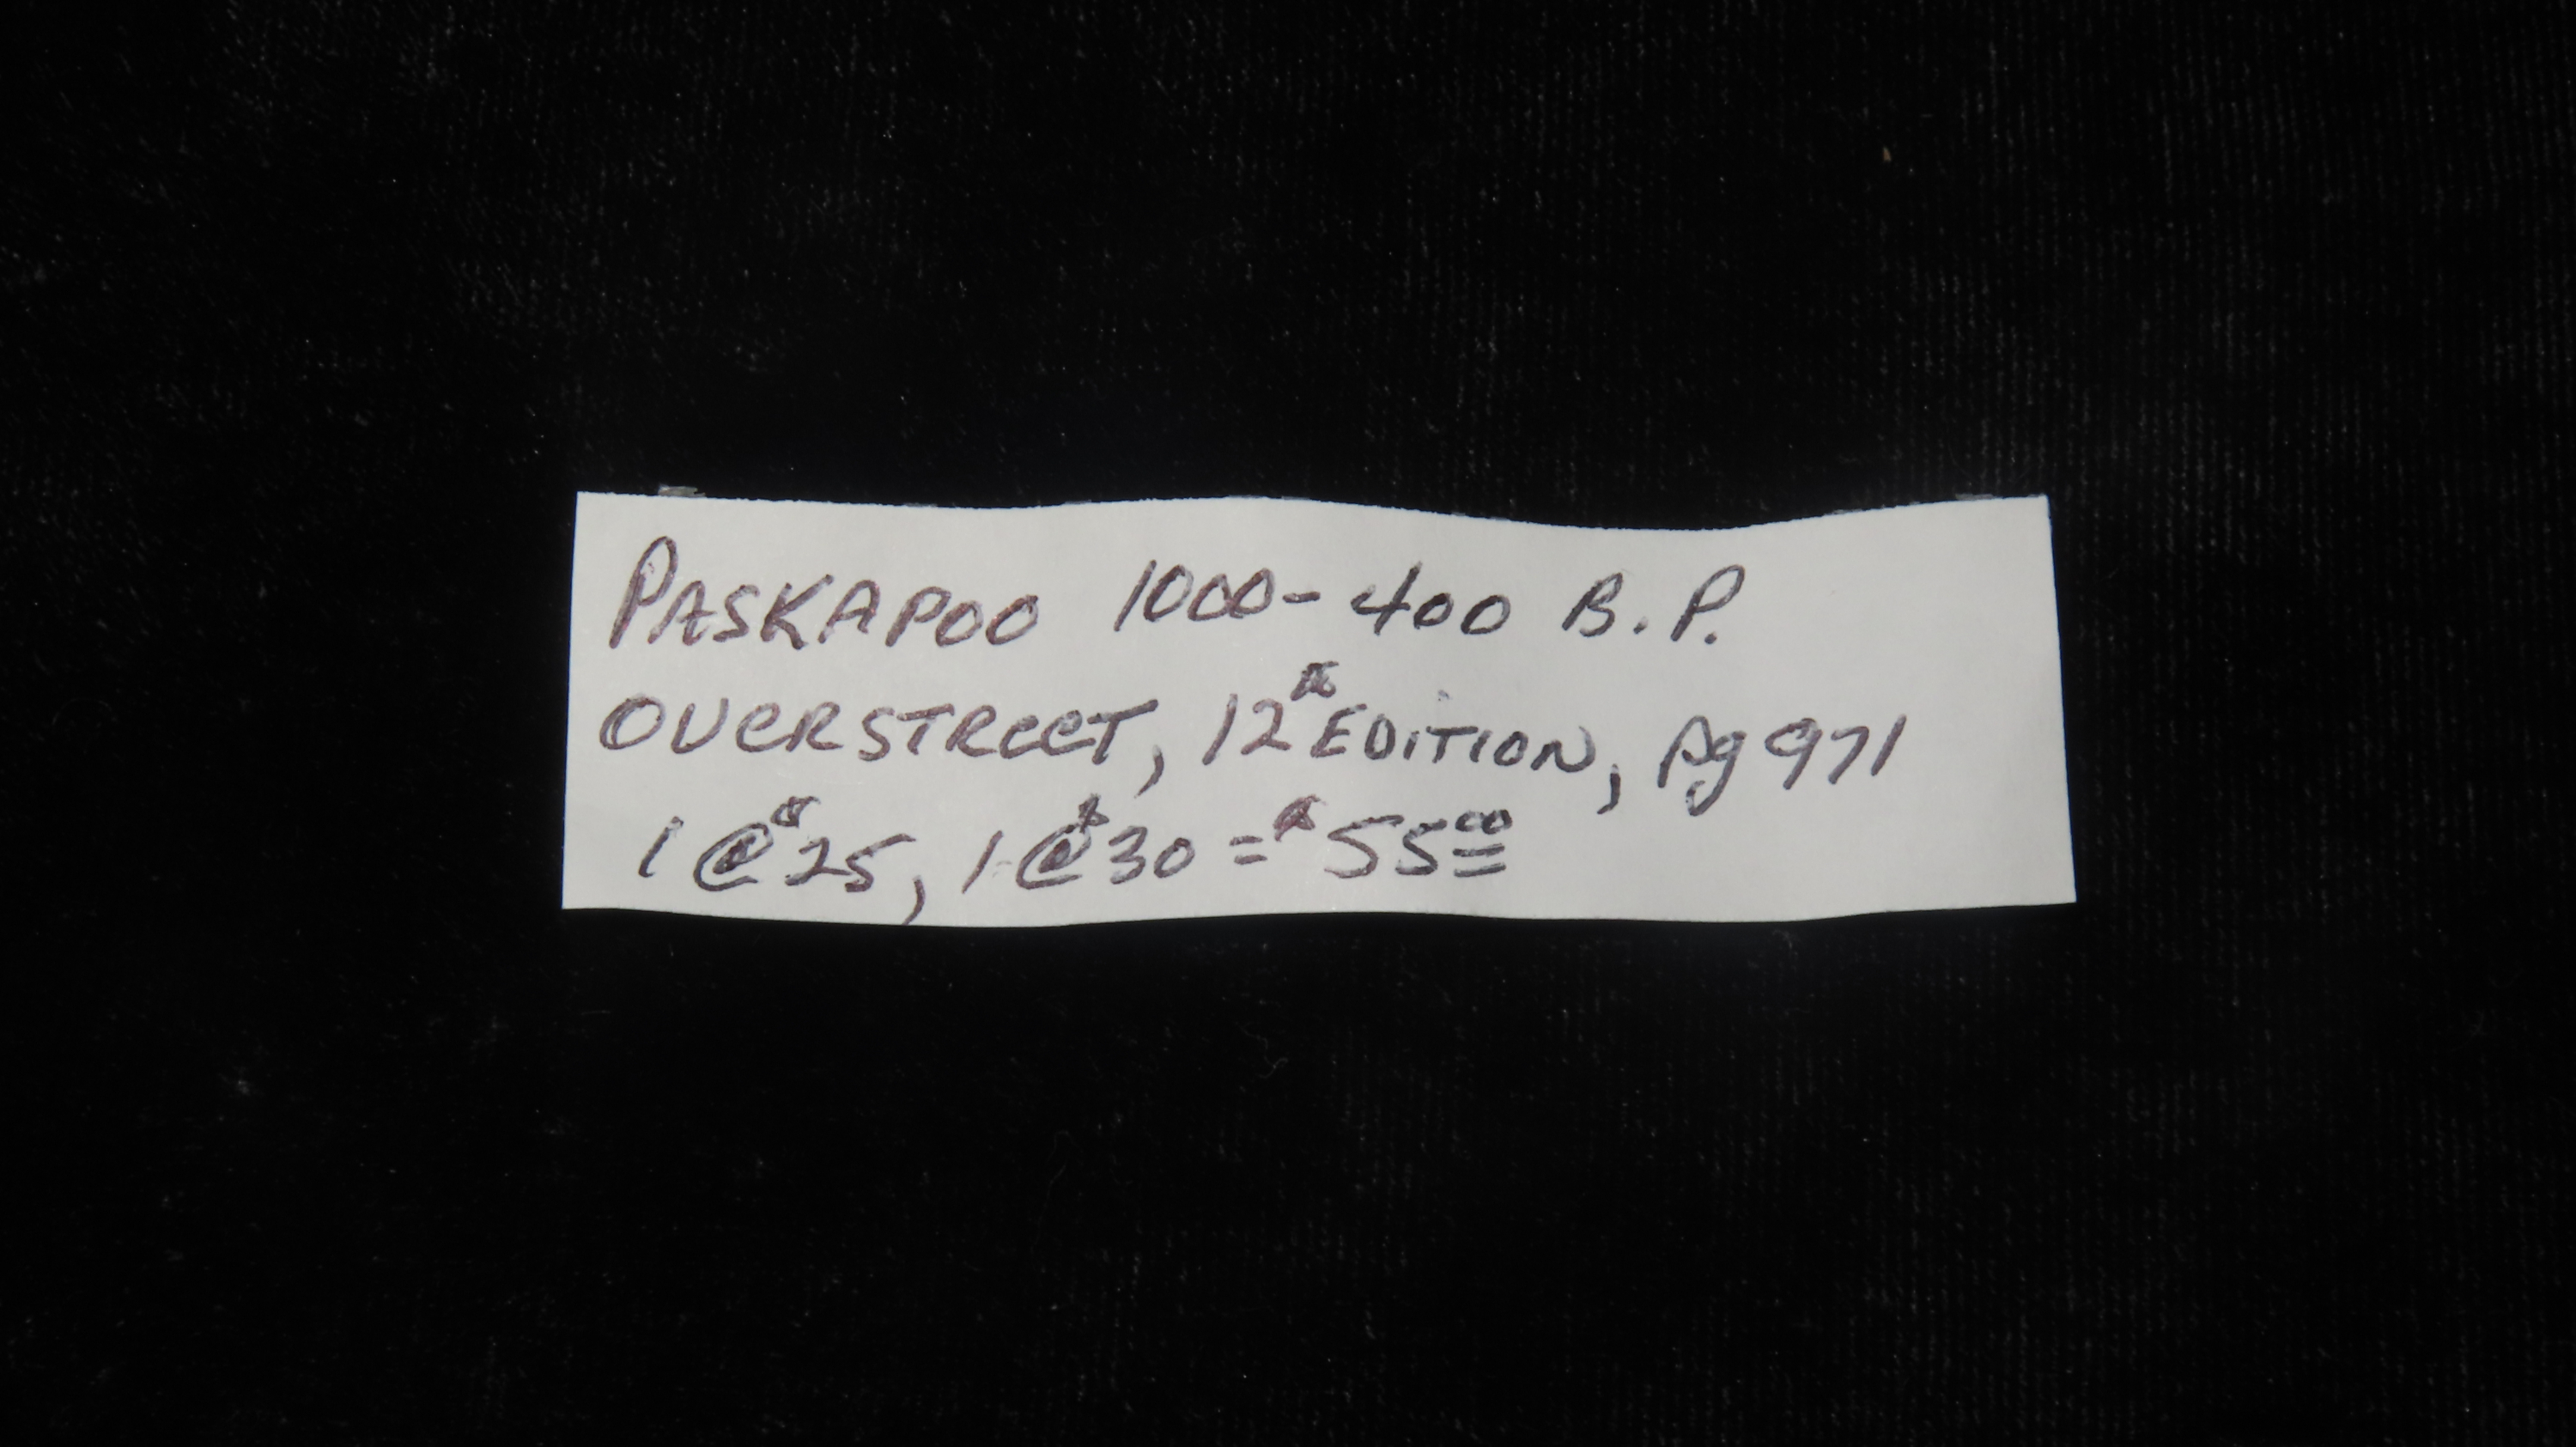 PASKAPOO 1000-400 B.P.
OVERSTREET, 12th EDITION, Pg 971
1 @ $25, 1 @ $30 = $55 00